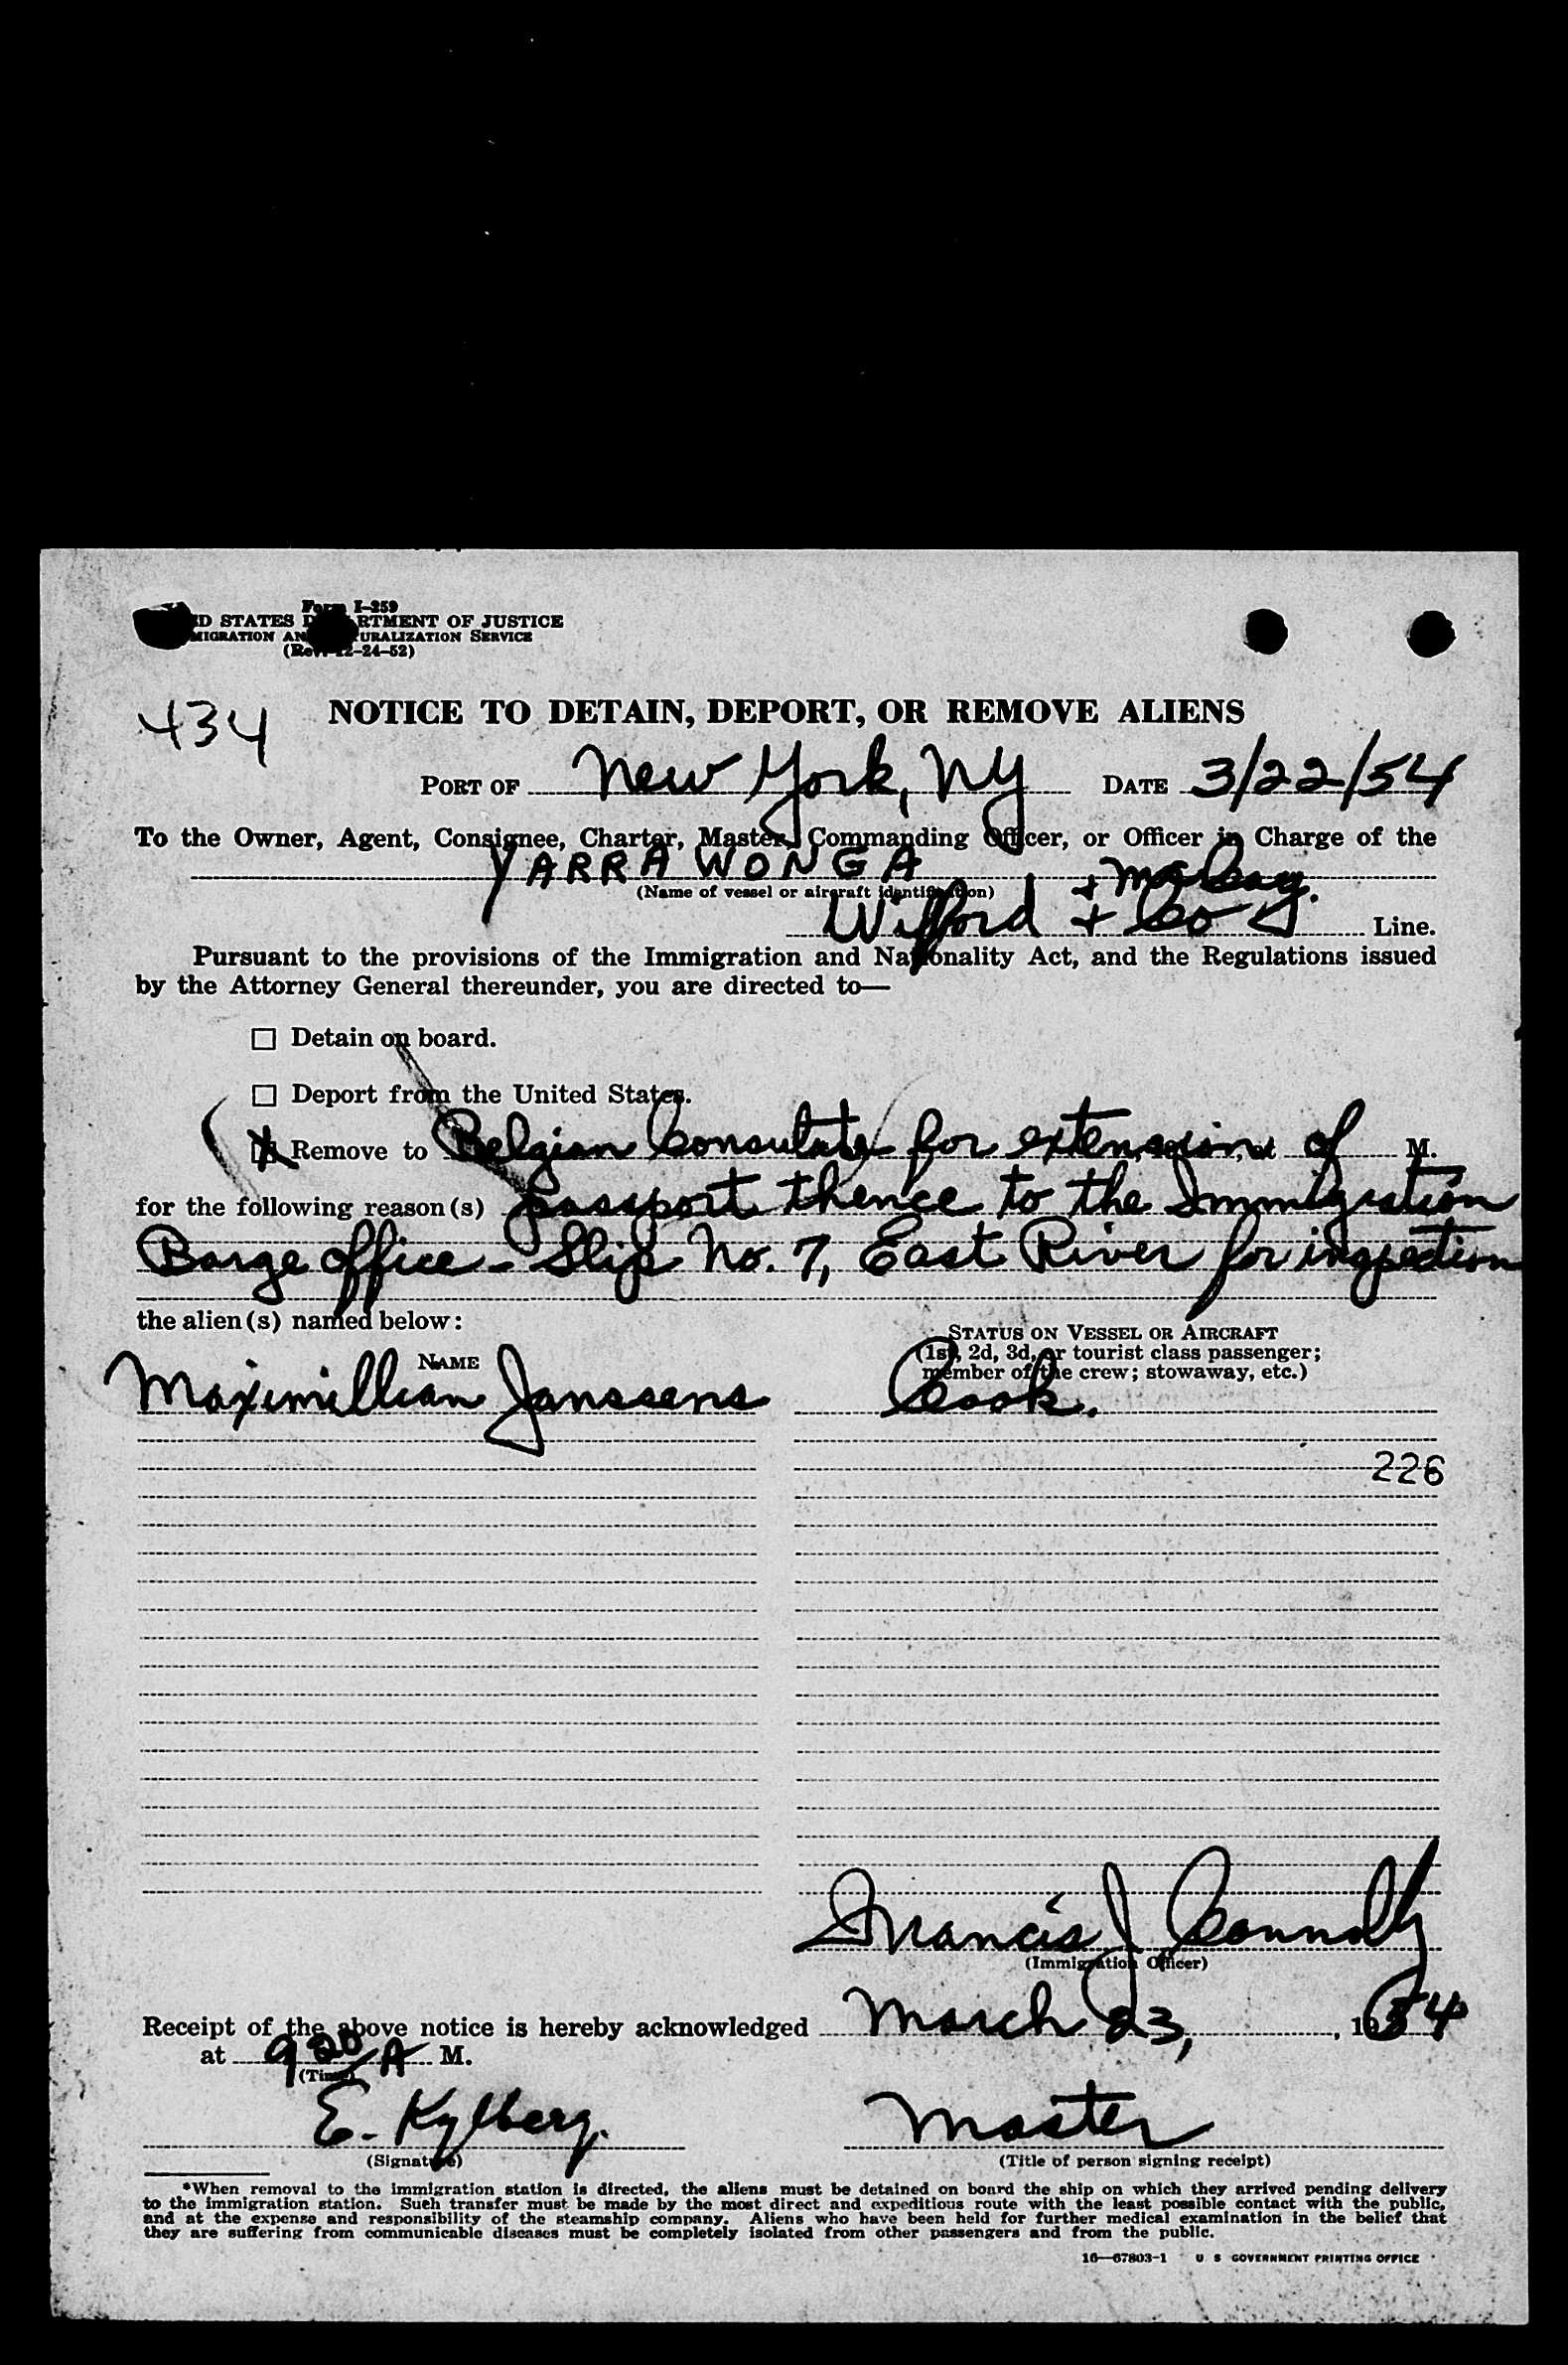 Form I-259
D STATES D RTMENT OF JUSTICE
MIGRATION AN URALIZATION SERVICE
(Rev. 12-24-52)
434
NOTICE TO DETAIN, DEPORT, OR REMOVE ALIENS
PORT OF New York, NY DATE 3/22/54
To the Owner, Agent, Consignee, Charter, Master, Commanding Officer, or Officer in Charge of the
YARRA WONGA
(Name of vessel or aircraft identification)
Wilford + Co Line.
Pursuant to the provisions of the Immigration and Nationality Act, and the Regulations issued
by the Attorney General thereunder, you are directed to—
Detain on board.
Deport from the United States.
X Remove to Belgian Consulate for extension of M.
for the following reason(s) passport thence to the Immigration
Barge office - Slip No. 7, East River for inspection
the alien(s) named below:
NAME
STATUS ON VESSEL OR AIRCRAFT
(1st, 2d, 3d, or tourist class passenger;
member of the crew; stowaway, etc.)
Maximillian Janssens Cook.
226
Francis J Connolly
(Immigration Officer)
Receipt of the above notice is hereby acknowledged March 23, 1954
at 9 20 A M.
(Time)
E. Kylberg. Master
(Signature) (Title of person signing receipt)
*When removal to the immigration station is directed, the aliens must be detained on board the ship on which they arrived pending delivery
to the immigration station. Such transfer must be made by the most direct and expeditious route with the least possible contact with the public,
and at the expense and responsibility of the steamship company. Aliens who have been held for further medical examination in the belief that
they are suffering from communicable diseases must be completely isolated from other passengers and from the public.
16—67803-1 U S GOVERNMENT PRINTING OFFICE